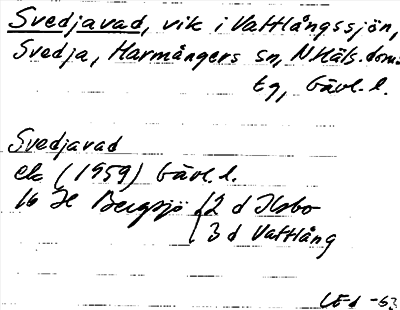 Svedjavad, vik i Vattlångssjön,
Svedja, Harmångers sn, N Häls. doms.
tg, Gävl. l.
Svedjavad
ek (1959) Gävl. l.
16 H Bergsjö { 2 d Ilsbo
3 d Vattlång
LEd -63